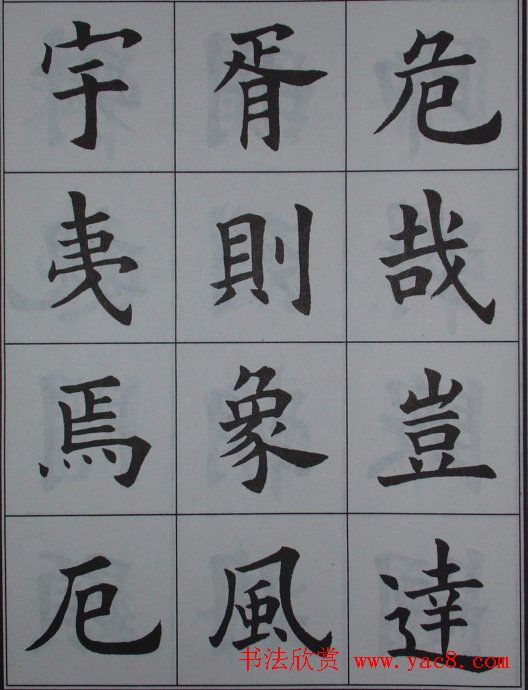 危哉豈達
胥則象風
宇夷焉厄
书法欣赏 www.yac8.com